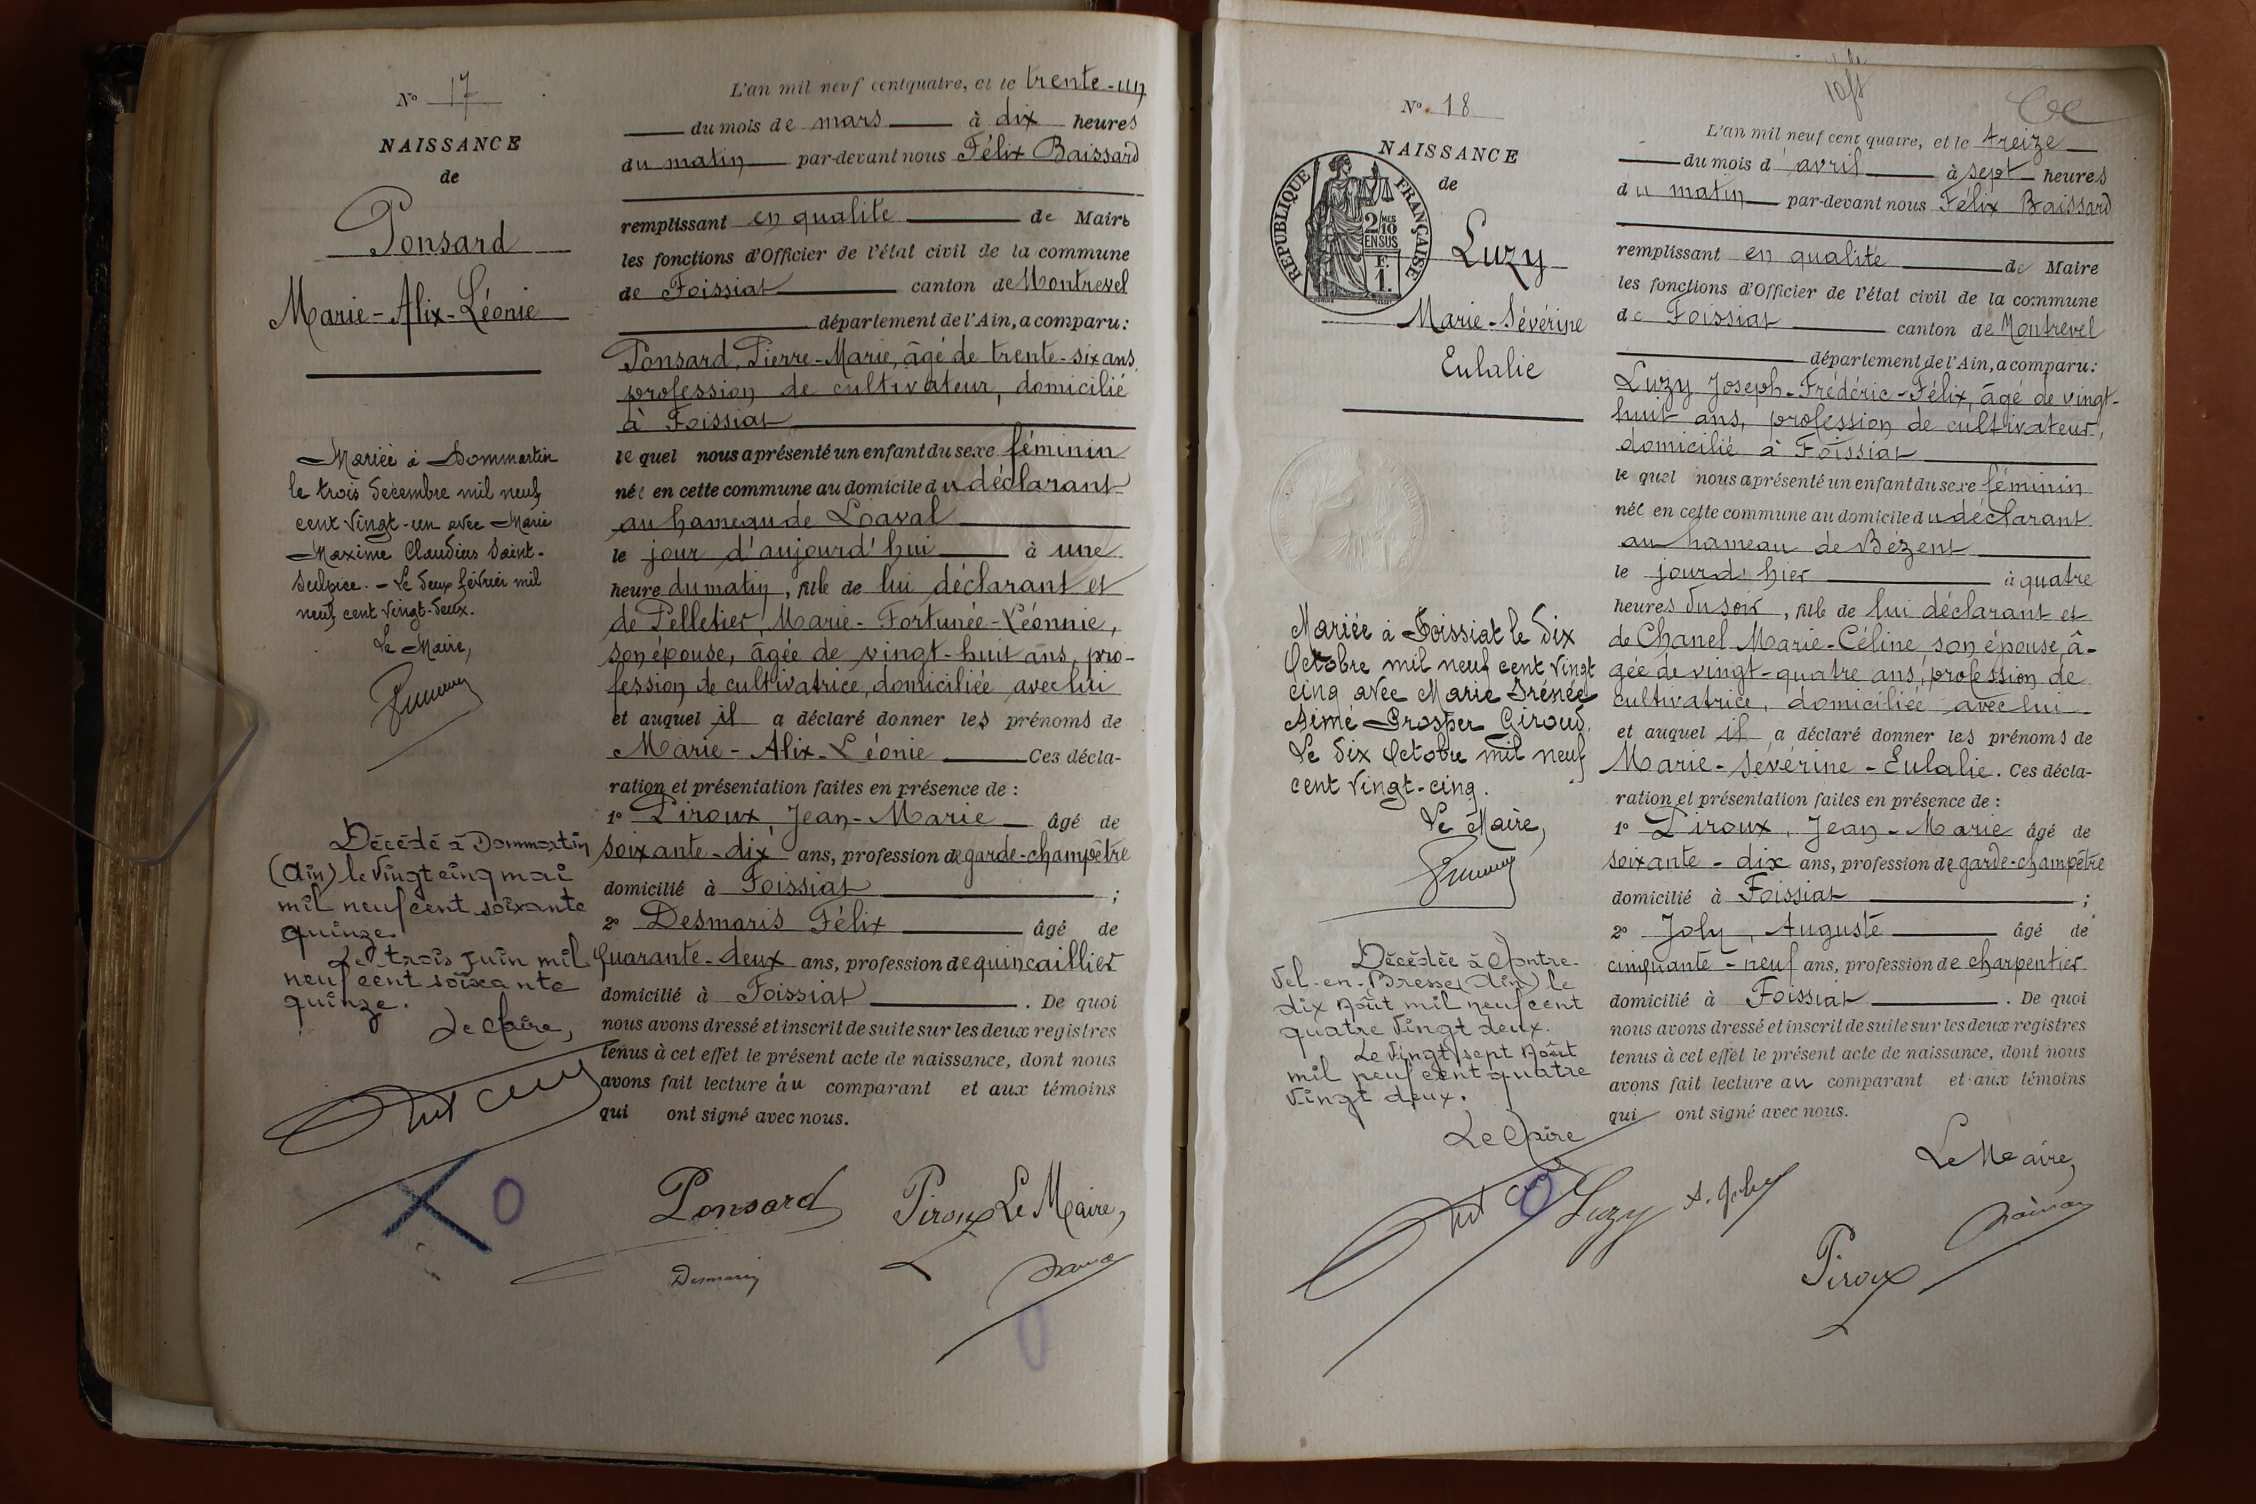 N° 17
NAISSANCE
de
Ponsard
Marie-Alix-Léonie
Mariée à Dommartin
le trois décembre mil neuf
cent vingt-un avec Marie
Maxime Claudius Saint-
Sulpice. - Le deux février mil
neuf cent vingt-deux.
Le Maire,
Décédé à Dommartin
(Ain) le vingt cinq mai
mil neuf cent soixante
quinze.
Le trois juin mil
neuf cent soixante
quinze.
Le Maire,
L'an mil neuf cent quatre, et le trente-un
du mois de mars à dix heures
du matin par-devant nous Félix Baissard
remplissant en qualité de Maire
les fonctions d'Officier de l'état civil de la commune
de Foissiat canton de Montrevel
département de l'Ain, a comparu :
Ponsard, Pierre-Marie, âgé de trente-six ans,
profession de cultivateur, domicilié
à Foissiat
le quel nous a présenté un enfant du sexe féminin
née en cette commune au domicile du déclarant
au hameau de Loaval
le jour d'aujourd'hui à une
heure du matin, fille de lui déclarant et
de Pelletier, Marie-Fortunée-Léonnie,
son épouse, âgée de vingt-huit ans, pro-
fession de cultivatrice, domiciliée avec lui
et auquel il a déclaré donner les prénoms de
Marie-Alix-Léonie Ces décla-
ration et présentation faites en présence de :
1° Piroux, Jean-Marie âgé de
soixante-dix ans, profession de garde-champêtre
domicilié à Foissiat ;
2° Desmaris Félix âgé de
quarante-deux ans, profession de quincaillier
domicilié à Foissiat . De quoi
nous avons dressé et inscrit de suite sur les deux registres
tenus à cet effet le présent acte de naissance, dont nous
avons fait lecture au comparant et aux témoins
qui ont signé avec nous.
Ponsard Piroux Le Maire,
Desmaris
N° 18
NAISSANCE
de
RÉPUBLIQUE FRANÇAISE
2/10 MES
EN SUS
F
1.
Luzy
Marie-Sévérine
Eulalie
Mariée à Foissiat le dix
Octobre mil neuf cent vingt
cinq avec Marie Irénée
Aimé Prosper Giroud.
Le dix Octobre mil neuf
cent vingt-cinq.
Le Maire,
Décédée à Montre-
vel-en-Bresse (Ain) le
dix Août mil neuf cent
quatre vingt deux.
Le vingt sept Août
mil neuf cent quatre
vingt deux.
Le Maire
L'an mil neuf cent quatre, et le treize
du mois d'avril à sept heures
du matin par-devant nous Félix Baissard
remplissant en qualité de Maire
les fonctions d'Officier de l'état civil de la commune
de Foissiat canton de Montrevel
département de l'Ain, a comparu :
Luzy Joseph-Frédéric-Félix, âgé de vingt-
huit ans, profession de cultivateur,
domicilié à Foissiat
le quel nous a présenté un enfant du sexe féminin
née en cette commune au domicile du déclarant
au hameau de Bézent
le jour d'hier à quatre
heures du soir, fille de lui déclarant et
de Chanel Marie-Céline, son épouse, â-
gée de vingt-quatre ans, profession de
cultivatrice, domiciliée avec lui
et auquel il a déclaré donner les prénoms de
Marie-Sévérine-Eulalie. Ces décla-
ration et présentation faites en présence de :
1° Piroux, Jean-Marie âgé de
soixante-dix ans, profession de garde-champêtre
domicilié à Foissiat ;
2° Joly, Auguste âgé de
cinquante-neuf ans, profession de charpentier
domicilié à Foissiat . De quoi
nous avons dressé et inscrit de suite sur les deux registres
tenus à cet effet le présent acte de naissance, dont nous
avons fait lecture au comparant et aux témoins
qui ont signé avec nous.
Le Maire,
Luzy A. Joly
Piroux